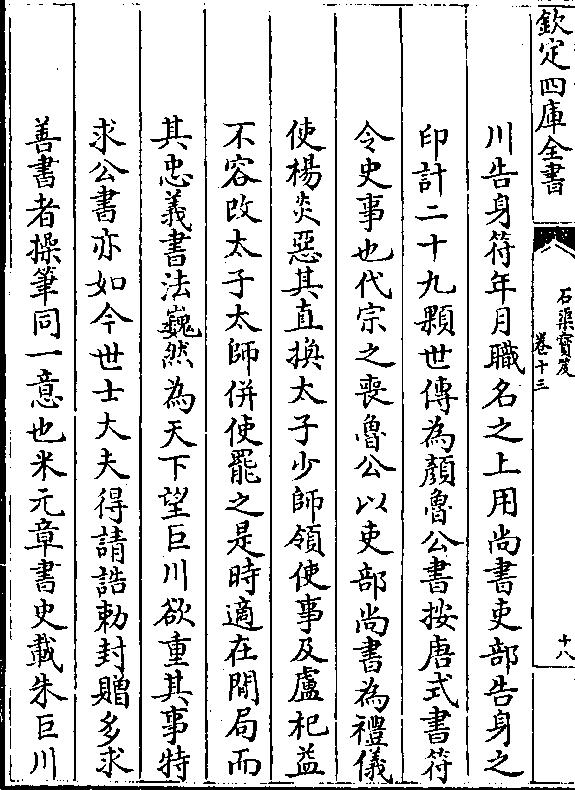 欽定四庫全書
石渠寶笈
卷十三
十八
川告身符年月職名之上用尚書吏部告身之
印計二十九顆世傳為顏魯公書按唐式書符
令史事也代宗之喪魯公以吏部尚書為禮儀
使楊炎惡其直換太子少師領使事及盧杞益
不容改太子太師併使罷之是時適在閒局而
其忠義書法巍然為天下望巨川欲重其事特
求公書亦如今世士大夫得請誥勅封贈多求
善書者操筆同一意也米元章書史載朱巨川